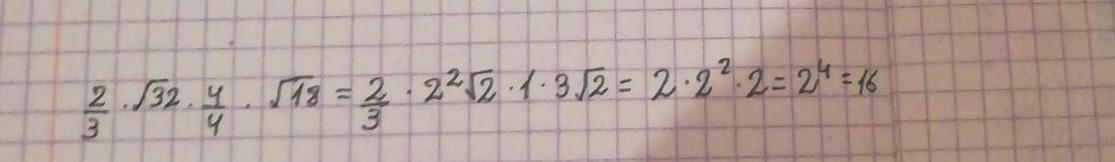 2/3 · √32 · 4/4 · √18 = 2/3 · 2²√2 · 1 · 3√2 = 2 · 2² · 2 = 2⁴ = 16